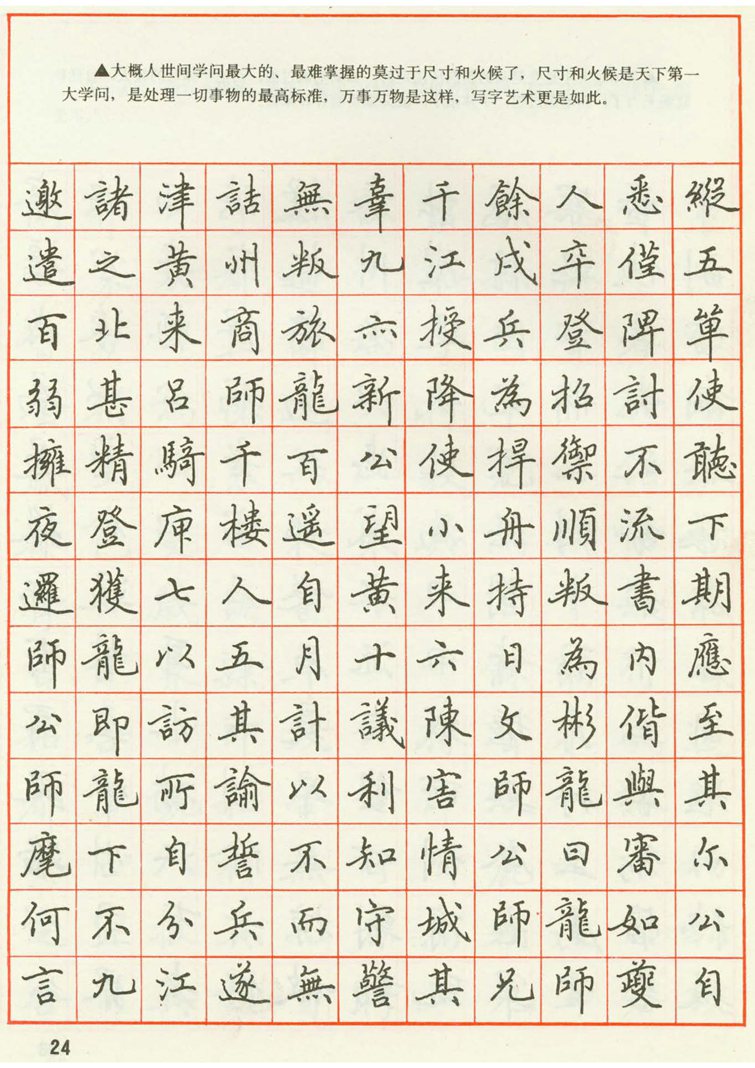 ▲大概人世间学问最大的、最难掌握的莫过于尺寸和火候了，尺寸和火候是天下第一
大学问，是处理一切事物的最高标准，万事万物是这样，写字艺术更是如此。
邀諸津詰無辜千餘人悉縱
遣之黄州叛九江戍卒僅五
百北来商旅亦授兵登陴單
弱甚呂師龍新降為招討使
擁精騎千百公使捍禦不聽
夜登庾樓遥望小舟順流下
邏獲七人自黄来持叛書期
師龍以五月十六日為内應
公即訪其計議陳文彬偕至
師龍所諭以利害師龍與其
麾下自誓不知情公曰審尔
何不分兵而守城師龍如公
言九江遂無警其兄師夔自
24